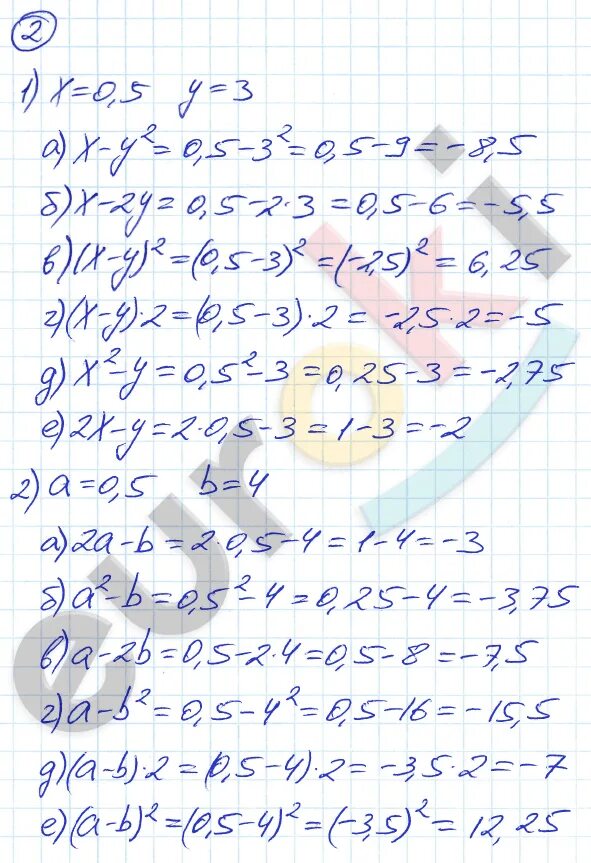 2
1) x=0,5 y=3
а) x-y²=0,5-3²=0,5-9=-8,5
б) x-2y=0,5-2·3=0,5-6=-5,5
в) (x-y)²=(0,5-3)²=(-2,5)²=6,25
г) (x-y)·2=(0,5-3)·2=-2,5·2=-5
д) x²-y=0,5²-3=0,25-3=-2,75
е) 2x-y=2·0,5-3=1-3=-2
2) a=0,5 b=4
а) 2a-b=2·0,5-4=1-4=-3
б) a²-b=0,5²-4=0,25-4=-3,75
в) a-2b=0,5-2·4=0,5-8=-7,5
г) a-b²=0,5-4²=0,5-16=-15,5
д) (a-b)·2=(0,5-4)·2=-3,5·2=-7
е) (a-b)²=(0,5-4)²=(-3,5)²=12,25
euroki